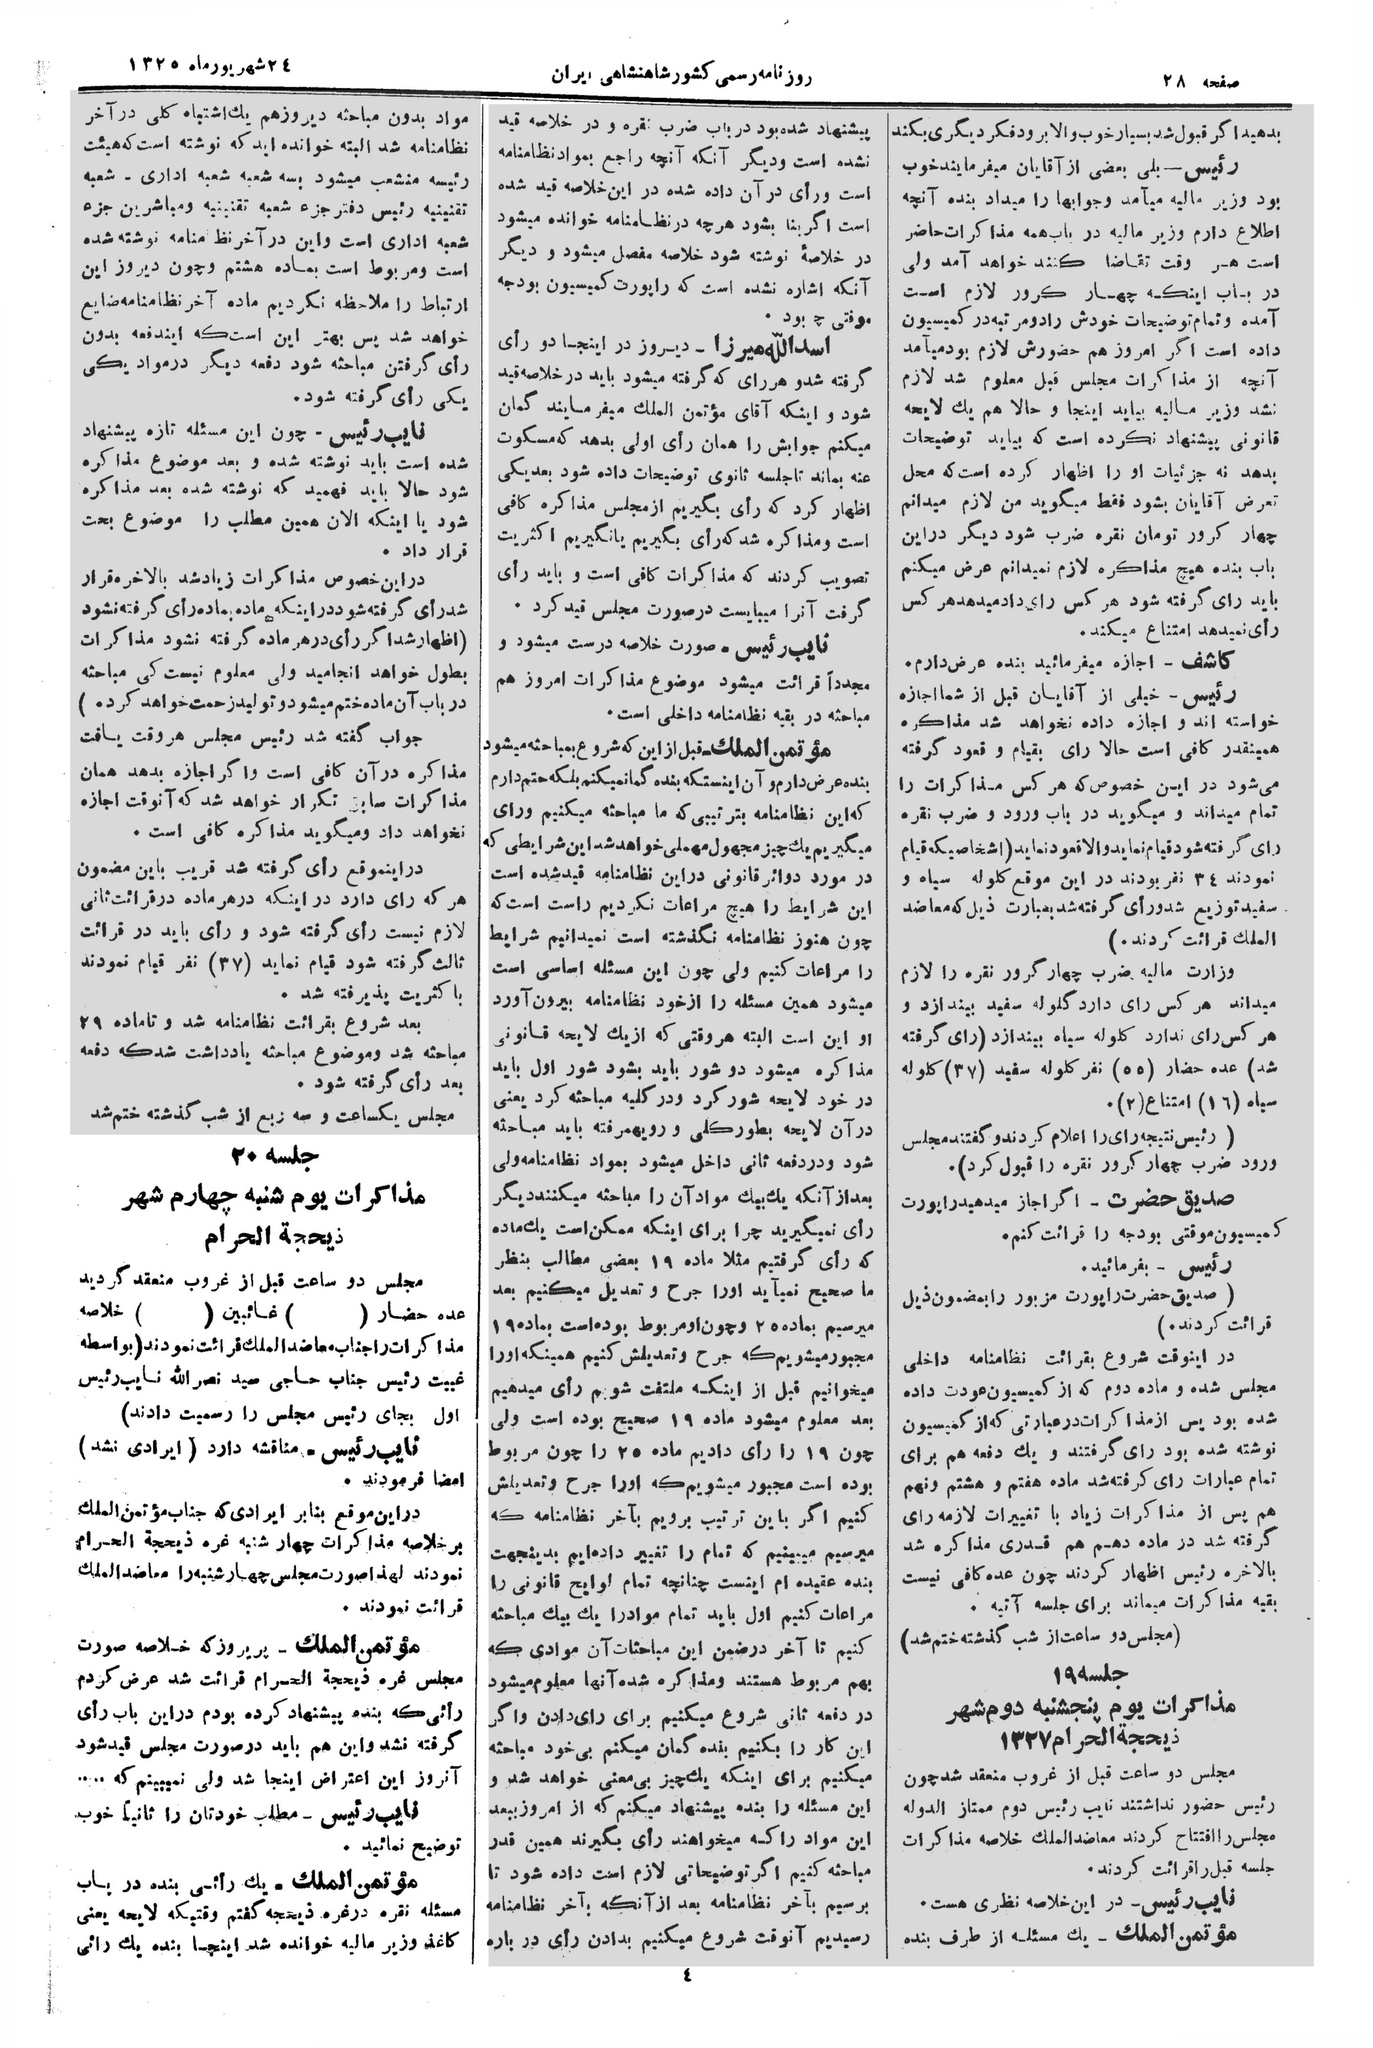 صفحه ۲۸
روزنامه رسمی کشور شاهنشاهی ایران
۲۴ شهریور ماه ۱۳۲۵
بدهید اگر قبول شد بسیار خوب والا برود فکر دیگری بکند
رئیس — بلی بعضی از آقایان میفرمایند خوب
بود وزیر مالیه میآمد وجوابها را میداد بنده آنچه
اطلاع دارم وزیر مالیه در باب همه مذاکرات حاضر
است هر وقت تقاضا کنند خواهد آمد ولی
در باب اینکه چهار کرور لازم است
آمده و تمام توضیحات خودش را دو مرتبه در کمیسیون
داده است اگر امروز هم حضورش لازم بود میآمد
آنچه از مذاکرات مجلس قبل معلوم شد لازم
نشد وزیر مالیه بیاید اینجا و حالا هم یك لایحه
قانونی پیشنهاد نکرده است که بیاید توضیحات
بدهد نه جزئیات او را اظهار کرده است که محل
تعرض آقایان بشود فقط میگوید من لازم میدانم
چهار کرور تومان نقره ضرب شود دیگر در این
باب بنده هیچ مذاکره لازم نمیدانم عرض میکنم
باید رای گرفته شود هر کس رای داد میدهد هر کس
رأی نمیدهد امتناع میکند.
کاشف – اجازه میفرمائید بنده عرض دارم.
رئیس – خیلی از آقایان قبل از شما اجازه
خواسته اند و اجازه داده نخواهد شد مذاکره
همینقدر کافی است حالا رای بقیام و قعود گرفته
می‌شود در این خصوص که هر کس مذاکرات را
تمام میداند و میگوید در باب ورود و ضرب نقره
رای گرفته شود قیام نماید والا قعود نماید (اشخاصیکه قیام
نمودند ۳۴ نفر بودند در این موقع گلوله سیاه و
سفید توزیع شد و رأی گرفته شد بعبارت ذیل که معاضد
الملك قرائت کردند.)
وزارت مالیه ضرب چهار کرور نقره را لازم
میداند هر کس رای دارد گلوله سفید بیندازد و
هر کس رای ندارد گلوله سیاه بیندازد (رای گرفته
شد) عده حضار (۵۵) نفر گلوله سفید (۳۷) گلوله
سیاه (۱۶) امتناع (۲).
(رئیس نتیجه رای را اعلام کردند و گفتند مجلس
ورود ضرب چهار کرور نقره را قبول کرد).
صدیق حضرت – اگر اجاز میدهید راپورت
کمیسیون موقتی بودجه را قرائت کنم.
رئیس – بفرمائید.
(صدیق حضرت راپورت مزبور را بمضمون ذیل
قرائت کردند.)
در اینوقت شروع بقرائت نظامنامه داخلی
مجلس شده و ماده دوم که از کمیسیون عودت داده
شده بود پس از مذاکرات در عبارتی که از کمیسیون
نوشته شده بود رای گرفتند و یك دفعه هم برای
تمام عبارات رای گرفته شد ماده هفتم و هشتم و نهم
هم پس از مذاکرات زیاد با تغییرات لازمه رای
گرفته شد در ماده دهم هم قدری مذاکره شد
بالاخره رئیس اظهار کردند چون عده کافی نیست
بقیه مذاکرات میماند برای جلسه آتیه .
(مجلس دو ساعت از شب گذشته ختم شد)
جلسه ۱۹
مذاکرات یوم پنجشنبه دوم شهر
ذیحجة الحرام ۱۳۲۷
مجلس دو ساعت قبل از غروب منعقد شد چون
رئیس حضور نداشتند نایب رئیس دوم ممتاز الدوله
مجلس را افتتاح کردند معاضد الملك خلاصه مذاکرات
جلسه قبل را قرائت کردند.
نایب رئیس – در این خلاصه نظری هست.
مؤتمن الملك – یك مسئله از طرف بنده
پیشنهاد شده بود در باب ضرب نقره و در خلاصه قید
نشده است و دیگر آنکه آنچه راجع بمواد نظامنامه
است و رأی در آن داده شده در این خلاصه قید شده
است اگر بنا بشود هرچه در نظامنامه خوانده میشود
در خلاصهٔ نوشته شود خلاصه مفصل میشود و دیگر
آنکه اشاره نشده است که راپورت کمیسیون بودجه
موقتی چ بود .
اسدالله میرزا – دیروز در اینجا دو رأی
گرفته شد و هر رای که گرفته میشود باید در خلاصه قید
شود و اینکه آقای مؤتمن الملك میفرمایند گمان
میکنم جوابش را همان رأی اولی بدهد که مسکوت
عنه بماند تا جلسه ثانوی توضیحات داده شود بعد یکی
اظهار کرد که رأی بگیریم از مجلس مذاکره کافی
است و مذاکره شد که رأی بگیریم یا نگیریم اکثریت
تصویب کردند که مذاکرات کافی است و باید رأی
گرفت آنرا میبایست در صورت مجلس قید کرد .
نایب رئیس – صورت خلاصه درست میشود و
مجدداً قرائت میشود موضوع مذاکرات امروز هم
مباحثه در بقیه نظامنامه داخلی است.
مؤتمن الملك – قبل از این که شروع بمباحثه میشود
بنده عرض دارم و آن اینستکه بنده گمان میکنم بلکه حتم دارم
که این نظامنامه بترتیبی که ما مباحثه میکنیم و رای
میگیریم یك چیز مجهول مهملی خواهد شد این شرایطی که
در مورد دوائر قانونی در این نظامنامه قید شده است
این شرایط را هیچ مراعات نکردیم راست است که
چون هنوز نظامنامه نگذشته است نمیدانیم شرایط
را مراعات کنیم ولی چون این مسئله اساسی است
میشود همین مسئله را از خود نظامنامه بیرون آورد
او این است البته هر وقتی که از یك لایحه قانونی
مذاکره میشود دو شور باید بشود شور اول باید
در خود لایحه شور کرد و در کلیه مباحثه کرد یعنی
در آن لایحه بطور کلی و رویهمرفته باید مباحثه
شود و در دفعه ثانی داخل میشود بمواد نظامنامه ولی
بعد از آنکه یك بیك مواد آن را مباحثه میکنند دیگر
رأی نمیگیرید چرا برای اینکه ممکن است یك ماده
که رأی گرفتیم مثلا ماده ۱۹ بعضی مطالب بنظر
ما صحیح نمیآید اورا جرح و تعدیل میکنیم بعد
میرسیم بماده ۲۵ و چون او مربوط بوده است بماده ۱۹
مجبور میشویم که جرح و تعدیلش کنیم همینکه اورا
میخوانیم قبل از اینکه ملتفت شویم رأی میدهیم
بعد معلوم میشود ماده ۱۹ صحیح بوده است ولی
چون ۱۹ را رأی دادیم ماده ۲۵ را چون مربوط
بوده است مجبور میشویم که اورا جرح و تعدیلش
کنیم اگر باین ترتیب برویم بآخر نظامنامه که
میرسیم میبینیم که تمام را تغییر داده‌ایم بدینجهت
بنده عقیده ام اینست چنانچه تمام لوایح قانونی را
مراعات کنیم اول باید تمام مواد را یك بیك مباحثه
کنیم تا آخر در ضمن این مباحثات آن موادی که
بهم مربوط هستند و مذاکره شده آنها معلوم میشود
در دفعه ثانی شروع میکنیم برای رای دادن و اگر
این کار را بکنیم بنده گمان میکنم بی‌خود مباحثه
میکنیم برای اینکه یك چیز بی‌معنی خواهد شد و
این مسئله را بنده پیشنهاد میکنم که از امروز ببعد
این مواد را که میخواهند رأی بگیرند همین قدر
مباحثه کنیم اگر توضیحاتی لازم است داده شود تا
برسیم بآخر نظامنامه بعد از آنکه بآخر نظامنامه
رسیدیم آنوقت شروع میکنیم بدادن رأی در باره
مواد بدون مباحثه دیروز هم یك اشتباه کلی در آخر
نظامنامه شد البته خوانده اید که نوشته است که هیئت
رئیسه منشعب میشود بسه شعبه شعبه اداری – شعبه
تقنینیه رئیس دفتر جزء شعبه تقنینیه و مباشرین جزء
شعبه اداری است و این در آخر نظامنامه نوشته شده
است و مربوط است بماده هشتم و چون دیروز این
ارتباط را ملاحظه نکردیم ماده آخر نظامنامه ضایع
خواهد شد پس بهتر این است که ایندفعه بدون
رأی گرفتن مباحثه شود دفعه دیگر در مواد یکی
یکی رأی گرفته شود.
نایب رئیس – چون این مسئله تازه پیشنهاد
شده است باید نوشته شده و بعد موضوع مذاکره
شود حالا باید فهمید که نوشته شده بعد مذاکره
شود یا اینکه الان همین مطلب را موضوع بحث
قرار داد .
در این خصوص مذاکرات زیاد شد بالاخره قرار
شد رأی گرفته شود در اینکه ماده بماده رأی گرفته نشود
(اظهار شد اگر رأی در هر ماده گرفته نشود مذاکرات
بطول خواهد انجامید ولی معلوم نیست کی مباحثه
در باب آن ماده ختم میشود و تولید زحمت خواهد کرد.)
جواب گفته شد رئیس مجلس هر وقت یافت
مذاکره در آن کافی است و اگر اجازه بدهد همان
مذاکرات سابق تکرار خواهد شد که آنوقت اجازه
نخواهد داد و میگوید مذاکره کافی است .
در اینموقع رأی گرفته شد قریب باین مضمون
هر که رای دارد در اینکه در هر ماده در قرائت ثانی
لازم نیست رأی گرفته شود و رأی باید در قرائت
ثالث گرفته شود قیام نماید (۳۷) نفر قیام نمودند
باکثریت پذیرفته شد .
بعد شروع بقرائت نظامنامه شد و تا ماده ۲۹
مباحثه شد و موضوع مباحثه یادداشت شد که دفعه
بعد رأی گرفته شود .
مجلس یکساعت و سه ربع از شب گذشته ختم شد
جلسه ۲۰
مذاکرات یوم شنبه چهارم شهر
ذیحجة الحرام
مجلس دو ساعت قبل از غروب منعقد گردید
عده حضار ( ) غائبین ( ) خلاصه
مذاکرات را جناب معاضد الملك قرائت نمودند (بواسطه
غیبت رئیس جناب حاجی سید نصرالله نایب رئیس
اول بجای رئیس مجلس را رسمیت دادند)
نایب رئیس – مناقشه دارد (ایرادی نشد)
امضا فرمودند .
در این موقع بنابر ایرادی که جناب مؤتمن الملك
بر خلاصه مذاکرات چهار شنبه غره ذیحجة الحرام
نمودند لهذا صورت مجلس چهارشنبه را معاضد الملك
قرائت نمودند .
مؤتمن الملك – پریروز که خلاصه صورت
مجلس غره ذیحجة الحرام قرائت شد عرض کردم
رائی که بنده پیشنهاد کرده بودم در این باب رأی
گرفته نشد و این هم باید در صورت مجلس قید شود
آنروز این اعتراض اینجا شد ولی نمیبینم که .....
نایب رئیس – مطلب خودتان را ثانیاً خوب
توضیح نمائید .
مؤتمن الملك – یك رأئی بنده در باب
مسئله نقره در غره ذیحجه گفتم وقتیکه لایحه یعنی
کاغذ وزیر مالیه خوانده شد اینجا بنده یك رائی
۴